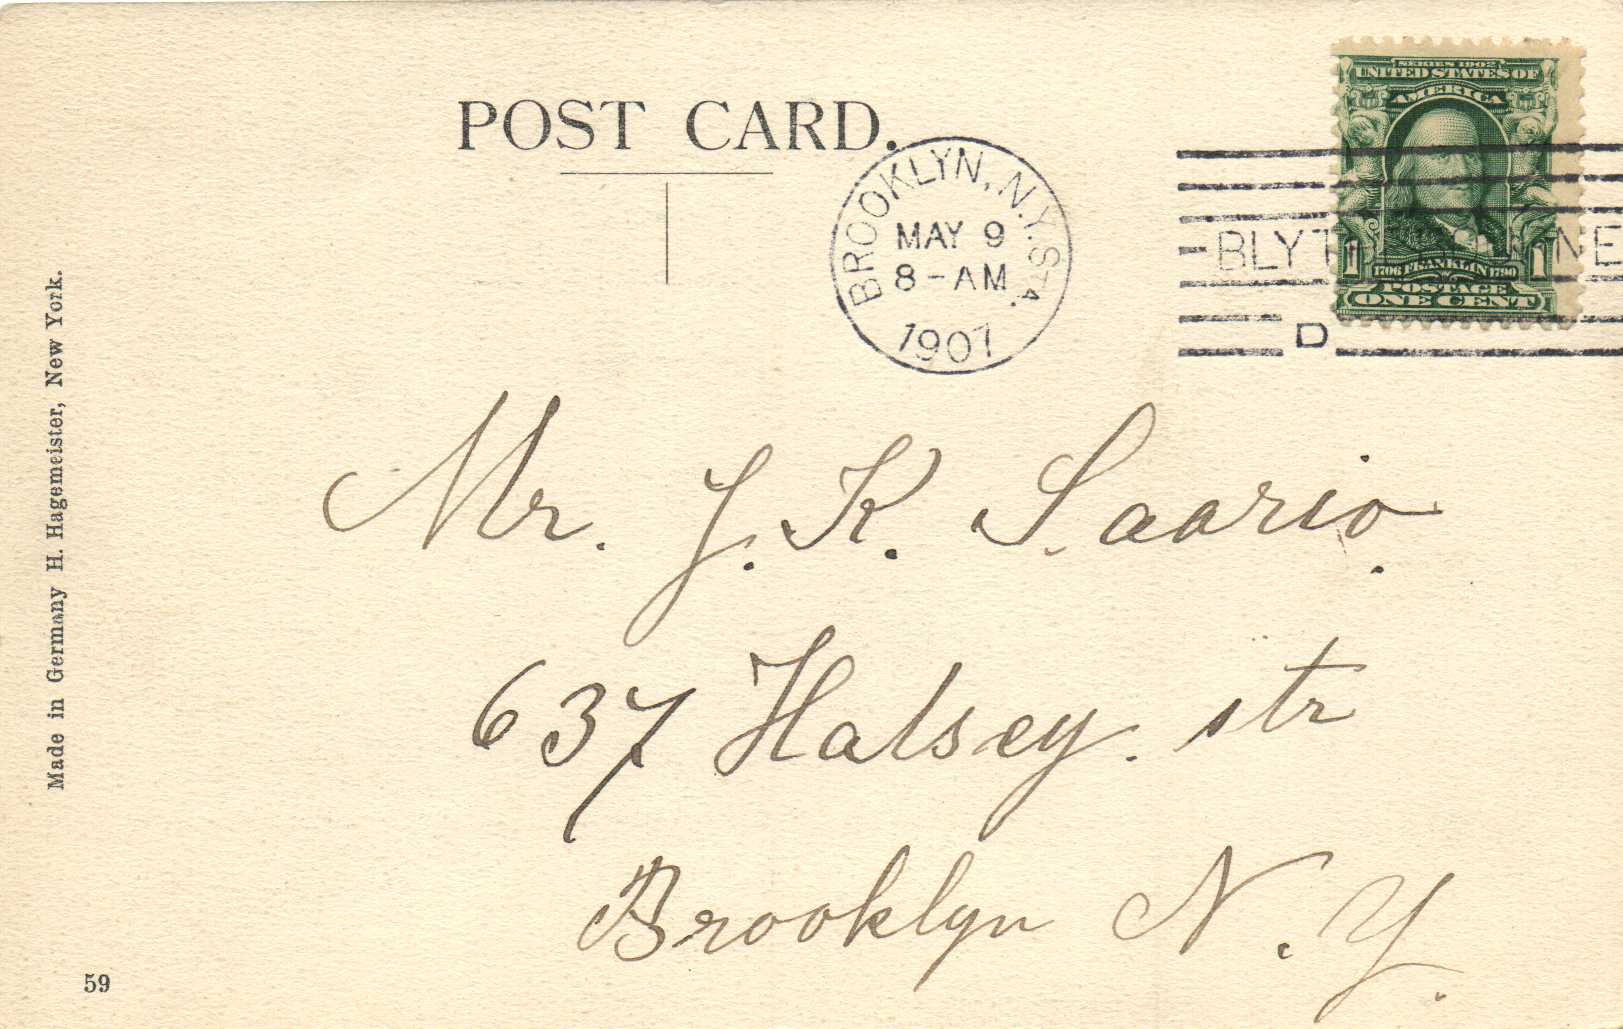 POST CARD.
BROOKLYN, N.Y. STA.
MAY 9
8-AM
1907
SERIES 1902
UNITED STATES OF
AMERICA
1 1706 FRANKLIN 1790 1
POSTAGE
ONE CENT
D
Mr. J. K. Saario.
637 Halsey. str
Brooklyn N. Y.
Made in Germany H. Hagemeister, New York.
59